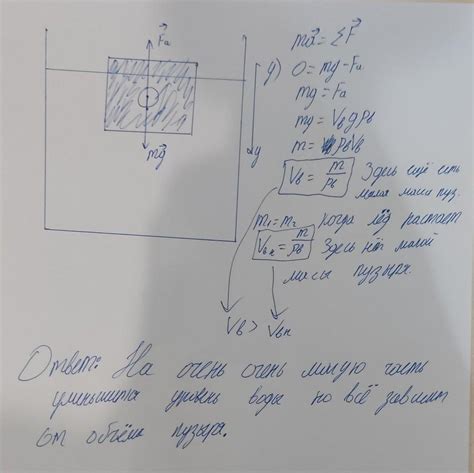 Fa
mg
y
ma = ΣF
y) 0 = mg - Fa
mg = Fa
mg = Vв g ρв
m = ρв Vв
Vв = m/ρв Здесь ещё есть
малая масса пуз.
m₁ = m₂ когда лёд растает
Vвк = m/ρв Здесь нет малой
массы пузыря.
Vв > Vвк
Ответ: На очень очень малую часть
уменьшится уровень воды но всё зависит
от объёма пузыря.